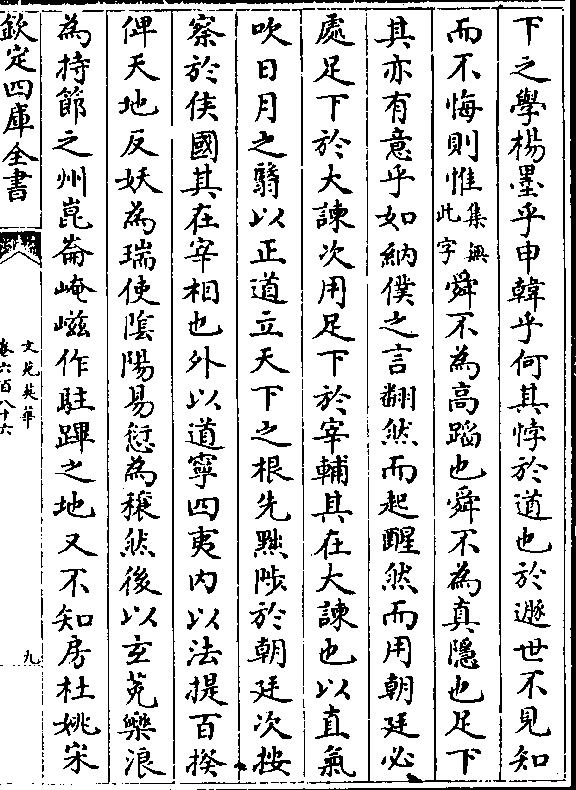 下之學楊墨乎申韓乎何其悖於道也於遯世不見知
而不悔則惟集無此字舜不為高蹈也舜不為真隱也足下
其亦有意乎如納僕之言翻然而起醒然而用朝廷必
處足下於大諫次用足下於宰輔其在大諫也以直氣
吹日月之翳以正道立天下之根先黜陟於朝廷次按
察於侯國其在宰相也外以道寧四夷内以法提百揆
俾天地反妖為瑞使隂陽易愆為穰然後以玄菟樂浪
為持節之州崑崙崦嵫作駐蹕之地又不知房杜姚宋
欽定四庫全書
文苑英華
卷六百八十六
九